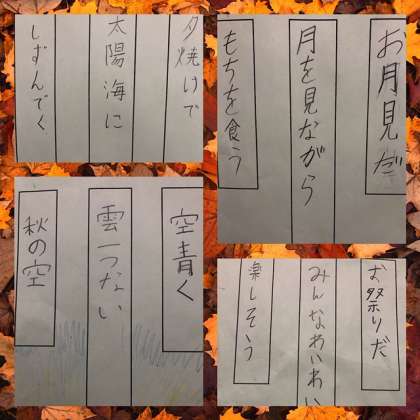 夕焼けで
太陽海に
しずんでく
お月見だ
月を見ながら
もちを食う
空青く
雲一つない
秋の空
お祭りだ
みんなわいわい
楽しそう